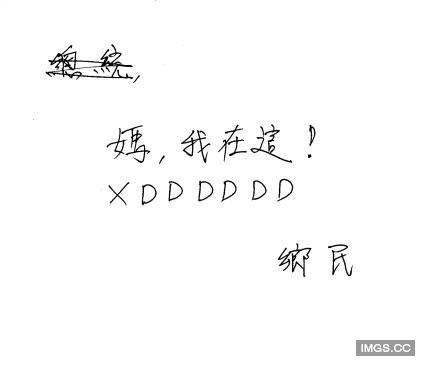 總統,
媽,我在這!
XDDDDDD
鄉民
IMGS.CC